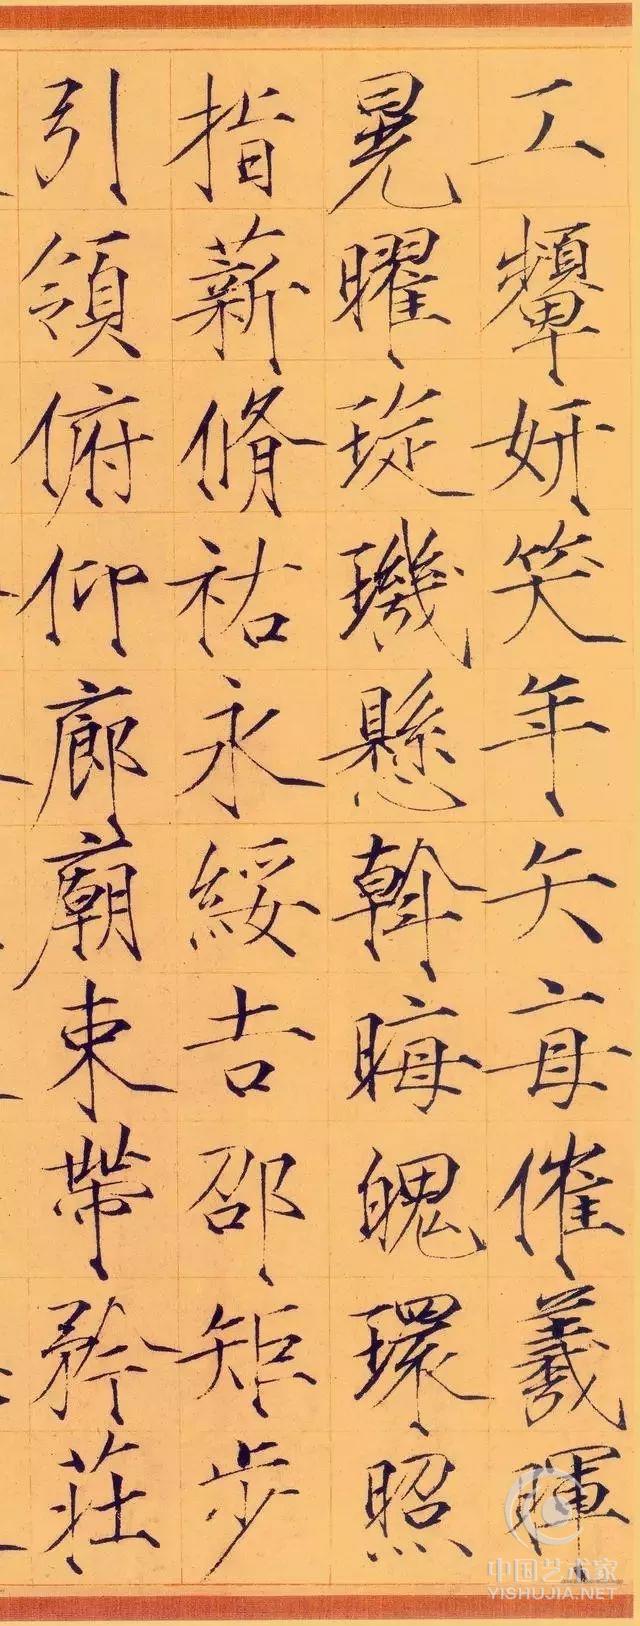 工顰妍笑年矢每催羲暉
晃曜琁璣懸斡晦魄環照
指薪脩祐永綏吉邵矩步
引領俯仰廊廟束帶矜莊
中国艺术家
YISHUJIA.NET